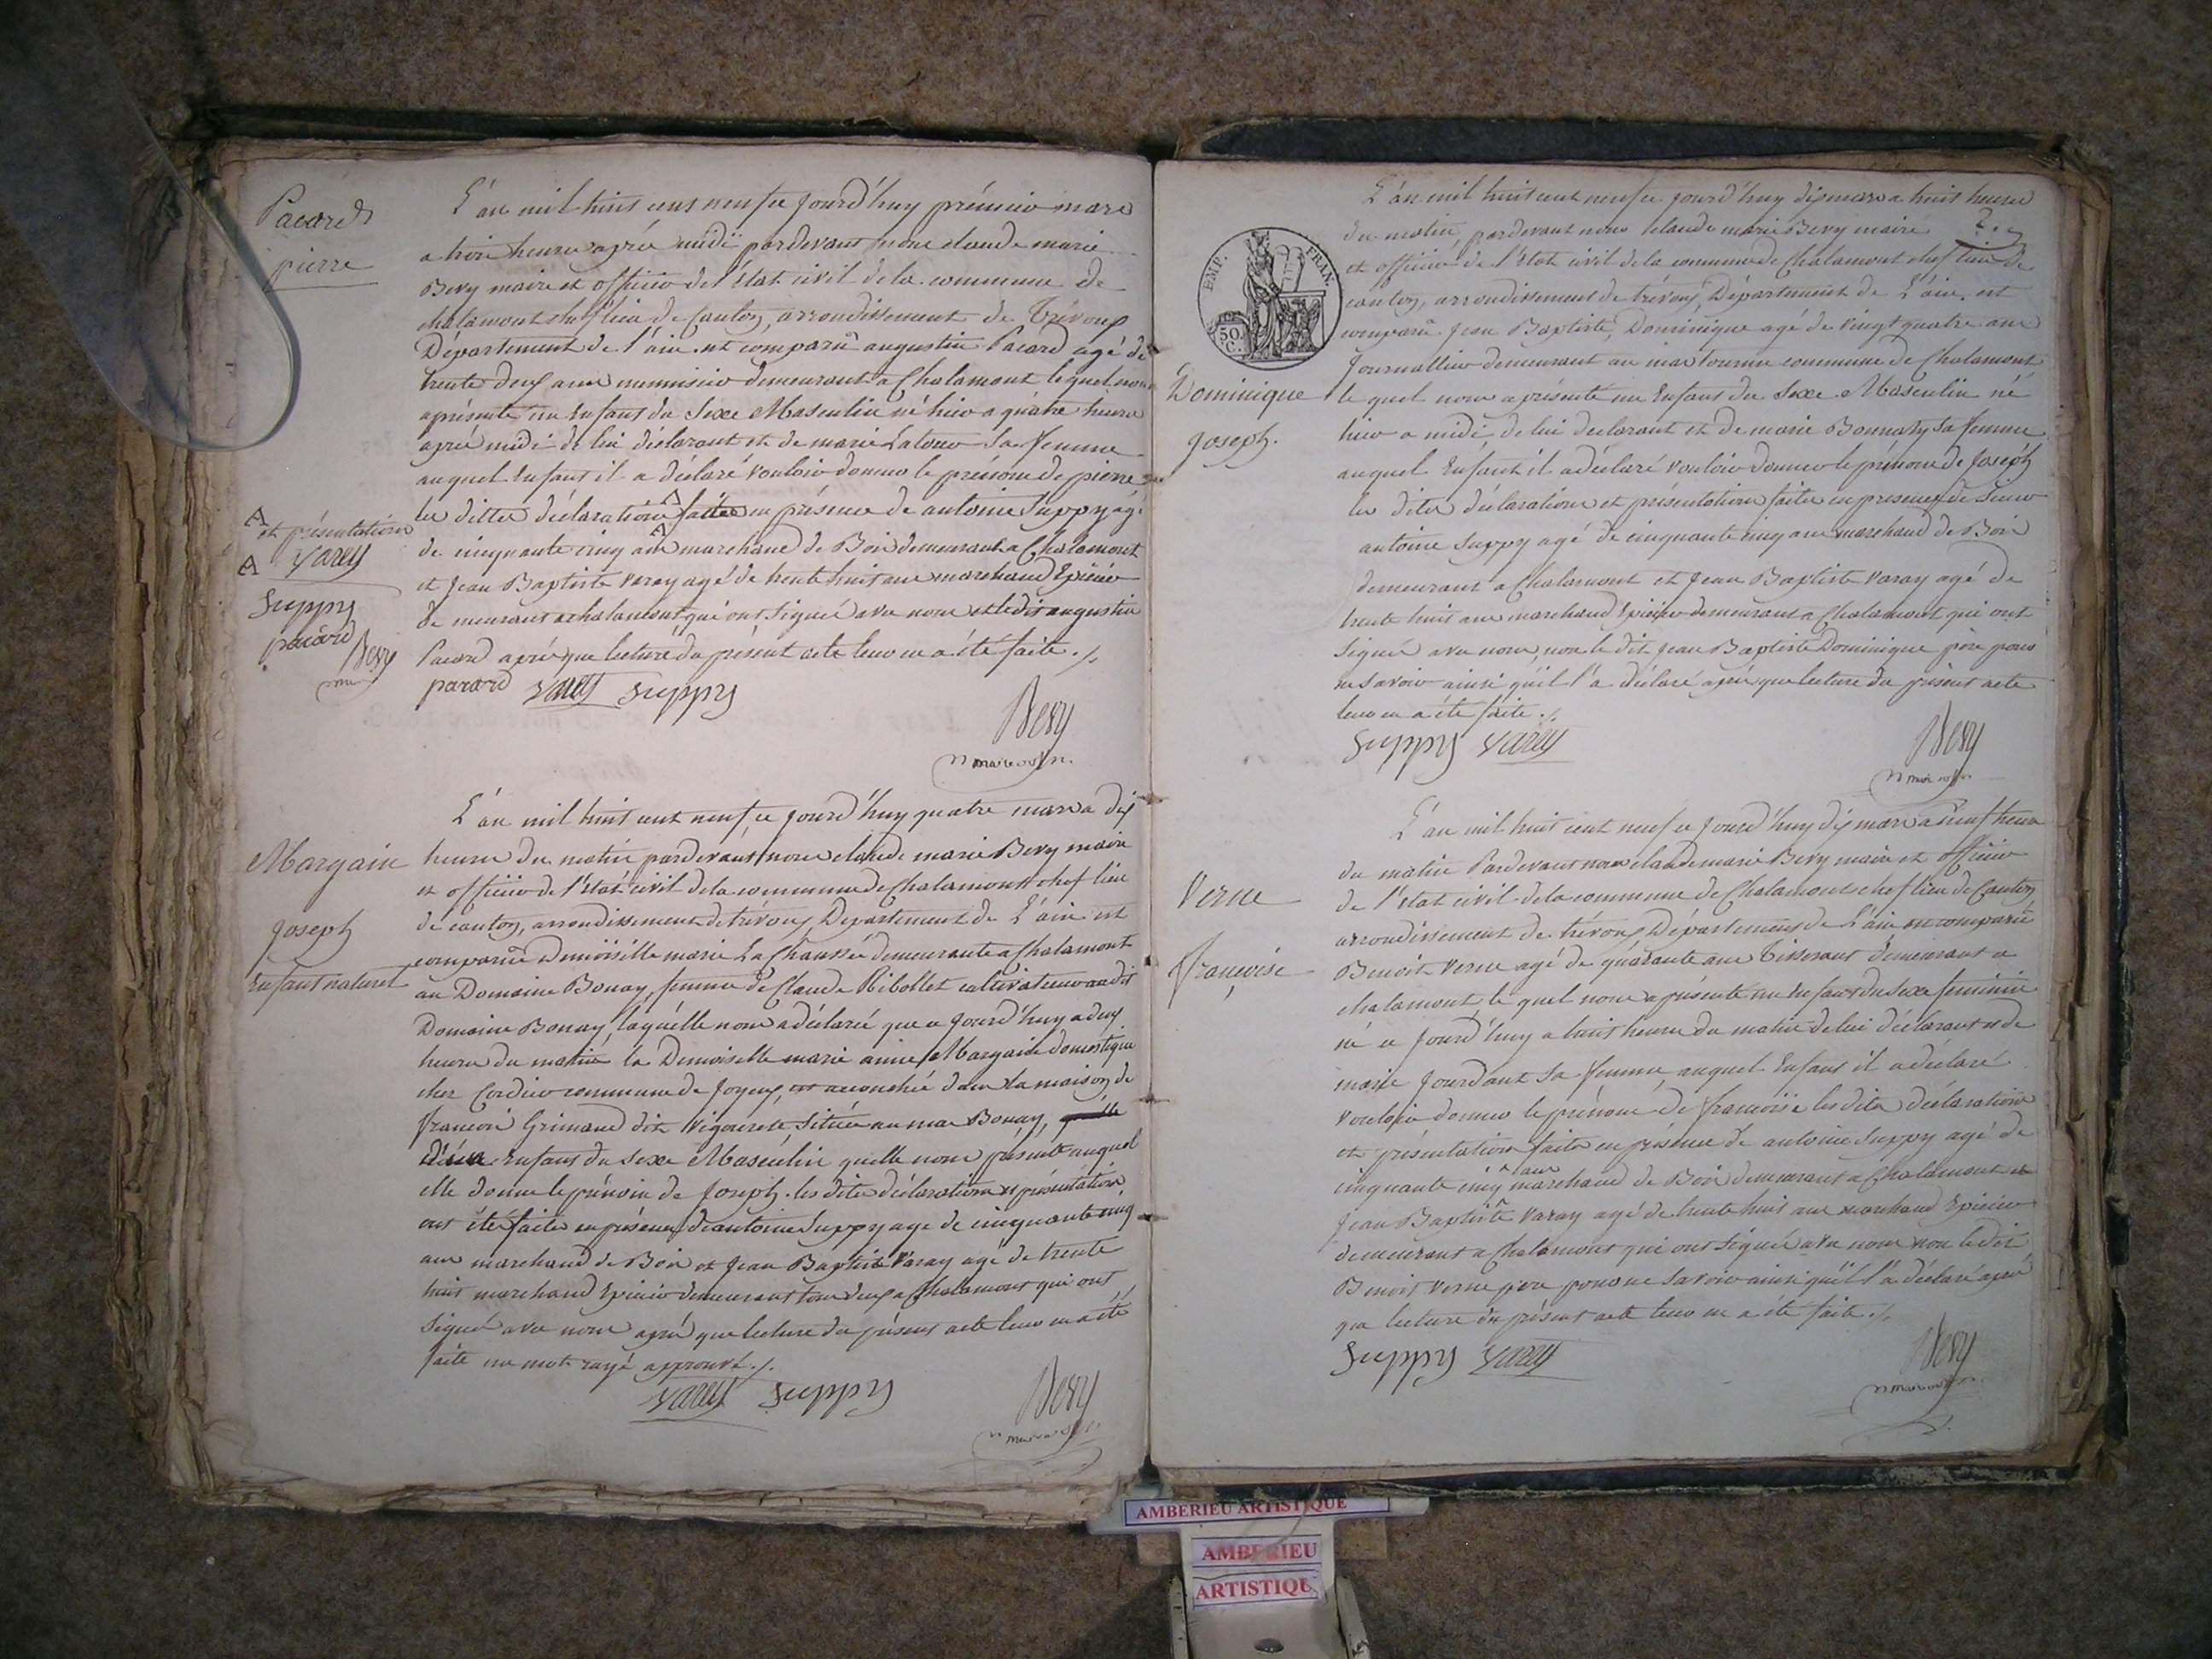 Pacard
pierre
L'an mil huit cent neuf ce jourd'huy prémier mars
a trois heures après midi pardevant nous claude marie
Bevy maire et officier de l'état civil de la commune de
chalamont chef lieu de Canton, arrondissement de Trévoux
Département de l'ain. est comparu augustin Pacard agé de
trente deux ans menuisier demeurant a Chalamont lequel nous
a présenté un Enfant du Sexe Masculin né hier a quatre heures
après midi de lui déclarant et de marie Latour Sa femme
auquel Enfant il a déclaré vouloir donner le prénom de pierre
les dittes déclarations A faittes en présence de antoine Suppy agé
de cinquante cinq ans marchand de Bois demeurant a Chalamont
et Jean Baptiste varay agé de trente huit ans marchand Epicier
demeurant a chalamont qui ont Signé avec nous et ledit augustin
Pacard après que lecture du présent acte leur en a été faite ./.
A et présentation
A varey
Suppy
pacard
Bevy
pacard varey Suppy
Bevy
Margain
Joseph
Enfant naturel
L'an mil huit cent neuf, ce jourd'huy quatre mars a dix
heures du matin pardevant nous claude marie Bevy maire
et officier de l'état civil de la commune de Chalamont chef lieu
de canton, arrondissement de trévoux, Département de L'ain est
comparue Demoiselle marie La Chaussée demeurante a Chalamont
au Domaine Bonay, femme de Claude Ribollet cultivateur audit
Domaine Bonay, laquélle nous a déclaré que ce jourd'huy a deux
heures du matin la Demoiselle marie anne Margain domestique
chez Cordier commune de Joyeux, est accouchée dans la maison de
françois Grimaud dit Vigourete Située au mas Bonay,
d'un Enfant du Sexe Masculin quelle nous présente auquel
elle donne le prénom de Joseph. les dites déclaration et présentation
ont été faites en présence de antoine Suppy agé de cinquante cinq
ans marchand de Bois et Jean Baptiste Varay agé de trente
huit marchand Epicier demeurant tous deux a Chalamont qui ont
Signé avec nous après que lecture du présent acte leur en a été
faite un mot rayé approuvé ./.
varey Suppy
Bevy
EMP. FRAN.
50
C.
Dominique
Joseph.
L'an mil huit cent neuf ce jourd'huy dix mars a huit heures
du matin, pardevant nous claude marie Bevy maire
et officier de l'état civil de la commune de Chalamont chef lieu de
canton, arrondissement de trévoux, Département de L'ain. est
comparu Jean Baptiste, Dominique agé de vingt quatre ans
Journallier demeurant au mas tournu commune de Chalamont
le quel nous a présenté un Enfant du Sexe Masculin né
hier a midi de lui declarant et de marie Bonnaty Sa femme
auquel Enfant il a déclaré vouloir donner le prénom de Joseph
les dites déclaration et présentation faites en presence de Sieur
antoine Suppy agé de cinquante cinq ans marchand de Bois
demeurant a Chalamont et Jean Baptiste varay agé de
trente huit ans marchand Epicier demeurant a Chalamont qui ont
Signé avec nous, non le dit Jean Baptiste Dominique père pour
ne Savoir ainsi qu'il l'a déclaré après que lecture du présent acte
leur en a été faite ./.
Suppy varey
Bevy
Verne
françoise
L'an mil huit cent neuf ce jourd'huy dix mars a neuf heures
du matin Pardevant nous claude marie Bevy maire et officier
de l'état civil de la commune de Chalamont chef lieu de Canton
arrondissement de trévoux, Département de L'ain est comparu
Benoit Verne agé de quarante ans Tisserant demeurant a
chalamont, le quel nous a présenté un Enfant du Sexe feminin
né ce jourd'huy a trois heures du matin de lui déclarant et de
marie Jourdant Sa femme, auquel Enfant il a déclaré
vouloir donner le prénom de françoise les dites déclaration
et présentation faites en présence de antoine Suppy agé de
cinquante cinq ans marchand de Bois demeurant a Chalamont et
Jean Baptiste Varay agé de trente huit ans marchand Epicier
demeurant a Chalamont qui ont Signé avec nous non ledit
Benoit Verne père pour ne Savoir ainsi qu'il l'a déclaré après
que lecture du présent acte leur en a été faite ./.
Suppy varey
Bevy
AMBERIEU ARTISTIQUE
AMBERIEU
ARTISTIQU